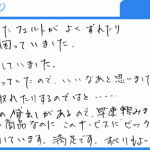 たフェルトが よく ずれたり
困っていました.
していました.
っていたので、いいなあと思いました
取れたりするのではと……
の貸出しがあるので、早速頼みま
商品なのに このサービスに ビック
いています。満足です。